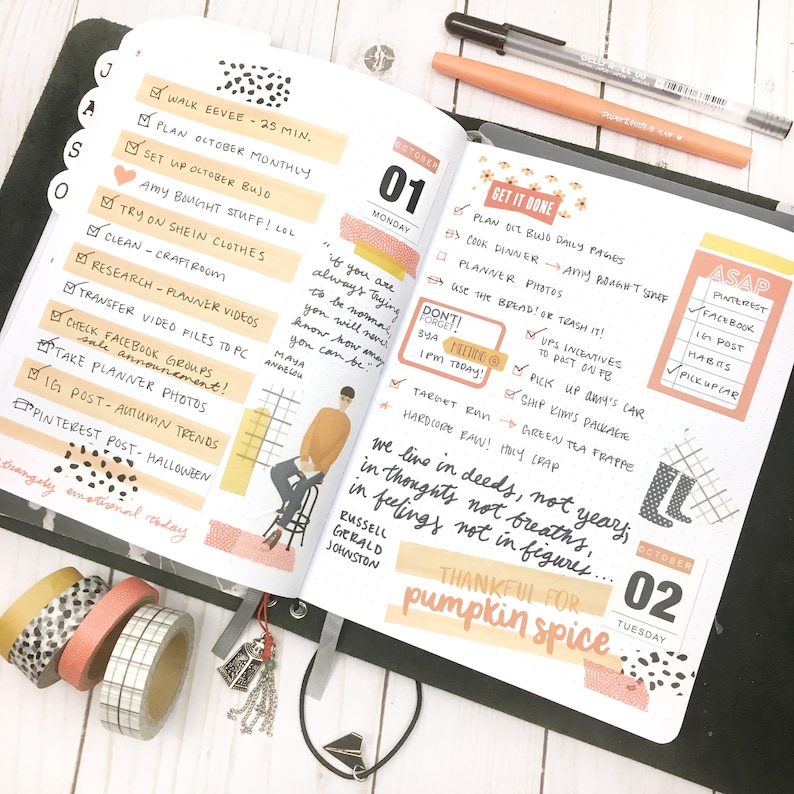 J
A
S
O
WALK EEVEE - 25 MIN.
PLAN OCTOBER MONTHLY
SET UP OCTOBER BUJO
AMY BOUGHT STUFF! LOL
TRY ON SHEIN CLOTHES
CLEAN - CRAFTROOM
RESEARCH - PLANNER VIDEOS
TRANSFER VIDEO FILES TO PC
CHECK FACEBOOK GROUPS
sale announcement!
TAKE PLANNER PHOTOS
IG POST - AUTUMN TRENDS
PINTEREST POST - HALLOWEEN
strangely emotional today
OCTOBER
01
MONDAY
"if you are
always trying
to be normal
you will never
know how amazing
you can be."
MAYA
ANGELOU
GET IT DONE
PLAN OCT BUJO DAILY PAGES
COOK DINNER → AMY BOUGHT STUFF
PLANNER PHOTOS
USE THE BREAD! OR TRASH IT!
DON'T!
FORGET!
3YA
MEETING @
1 PM TODAY!
UPS INCENTIVES
TO POST ON FB
PICK UP AMY'S CAR
SHIP KIM'S PACKAGE
TARGET RUN → GREEN TEA FRAPPE
HARDCORE RAW! HOLY CRAP
ASAP
PINTEREST
FACEBOOK
IG POST
HABITS
PICK UP CAR
we live in deeds, not years;
in thoughts not breaths;
in feelings not in figures...
RUSSELL
GERALD
JOHNSTON
THANKFUL FOR
pumpkin spice
OCTOBER
02
TUESDAY
GELLY ROLL 08
JAPAN SAKURA
PAPER MATE FLAIR M